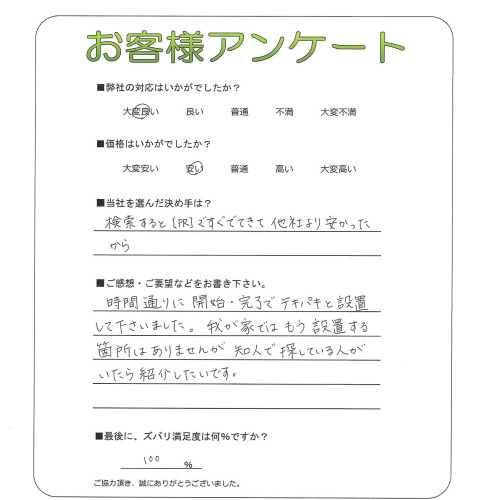 お客様アンケート
■弊社の対応はいかがでしたか？
大変良い 良い 普通 不満 大変不満
■価格はいかがでしたか？
大変安い 安い 普通 高い 大変高い
■当社を選んだ決め手は？
検索すると[PR]ですぐでてきて他社より安かった
から
■ご感想・ご要望などをお書き下さい。
時間通りに開始・完了でテキパキと設置
して下さいました。我が家ではもう設置する
箇所はありませんが知人で探している人が
いたら紹介したいです。
■最後に、ズバリ満足度は何%ですか？
100 %
ご協力頂き、誠にありがとうございました。